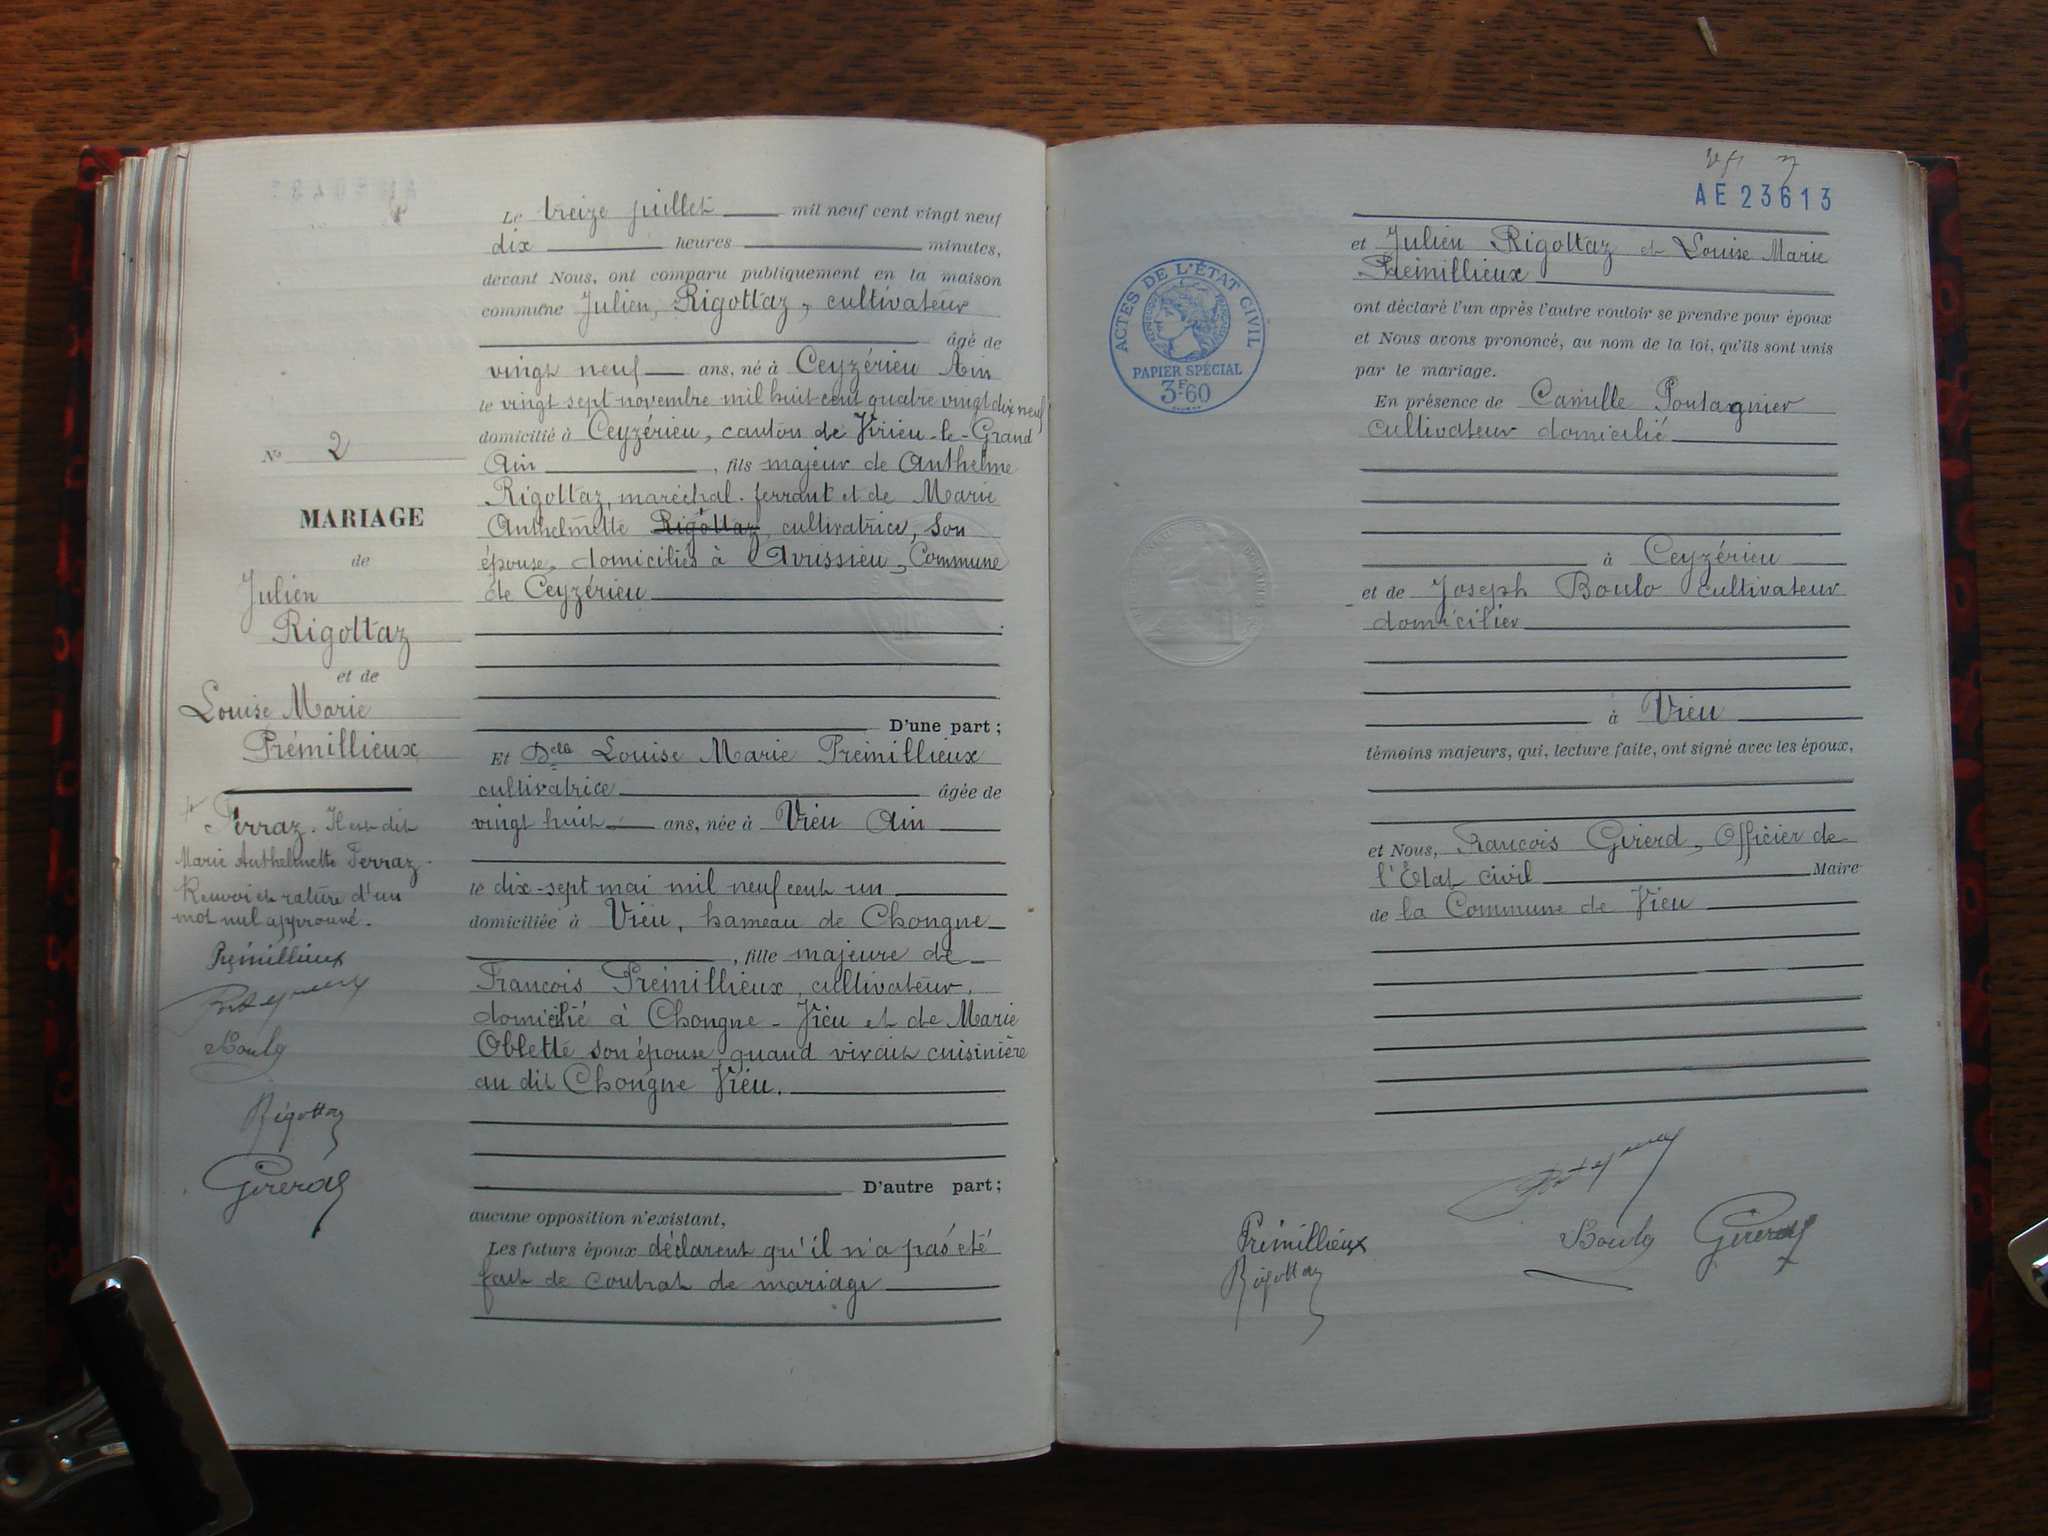 N° 2
MARIAGE
de
Julien
Rigottaz
et de
Louise Marie
Prémillieux
Ferraz. Il est dit
Marie Anthelmette Ferraz.
Renvoi et rature d'un
mot nul approuvé.
Prémillieux
Boulo
Rigottaz
Girerd
Le treize juillet mil neuf cent vingt neuf
dix heures minutes,
devant Nous, ont comparu publiquement en la maison
commune Julien, Rigottaz, cultivateur
âgé de
vingt neuf ans, né à Ceyzérieu Ain
le vingt sept novembre mil huit cent quatre vingt dix neuf
domicilié à Ceyzérieu, canton de Virieu-le-Grand
Ain , fils majeur de Anthelme
Rigottaz, maréchal-ferrant et de Marie
Anthelmette Rigottaz, cultivatrice, son
épouse, domiciliés à Avrissieu, Commune
de Ceyzérieu
D'une part;
Et Delle Louise Marie Prémillieux
cultivatrice âgée de
vingt huit ans, née à Vieu Ain
le dix-sept mai mil neuf cent un
domiciliée à Vieu, hameau de Chongne
, fille majeure de
Francois Prémillieux, cultivateur,
domicilié à Chongne-Vieu et de Marie
Oblette son épouse, quand vivait cuisinière
au dit Chongne Vieu.
D'autre part;
aucune opposition n'existant,
Les futurs époux déclarent qu'il n'a pas été
fait de contrat de mariage
AE 23613
ACTES DE L'ÉTAT CIVIL
PAPIER SPÉCIAL
3F.60
et Julien Rigottaz et Louise Marie
Prémillieux
ont déclaré l'un après l'autre vouloir se prendre pour époux
et Nous avons prononcé, au nom de la loi, qu'ils sont unis
par le mariage.
En présence de Camille Pontagnier
cultivateur domicilié
à Ceyzérieu
et de Joseph Boulo cultivateur
domicilier
à Vieu
témoins majeurs, qui, lecture faite, ont signé avec les époux,
et Nous, Francois Girerd, Officier de
l'État civil Maire
de la Commune de Vieu
Prémillieux
Boulo
Girerd
Rigottaz